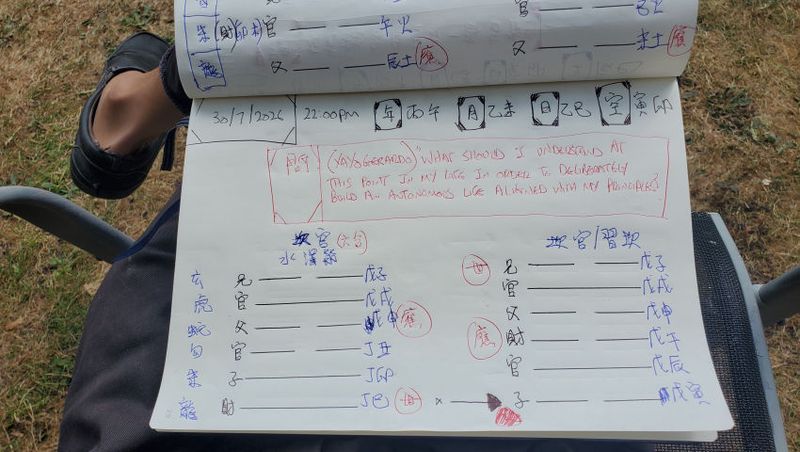 官 午火
父 辰土 應 父 未土 應
30/7/2026 22:00PM 年 丙午 月 乙未 日 乙巳 空 寅卯
問 (YAYO GERARDO) "WHAT SHOULD I UNDERSTAND AT
THIS POINT IN MY LIFE IN ORDER TO DELIBERATELY
BUILD AN AUTONOMOUS LIFE ALIGNED WITH MY PRINCIPLES?
坎宫 (六合) 坎宫/習坎
水澤節
玄 兄 戊子 世 兄 戊子
虎 官 戊戌 官 戊戌
蛇 父 戊申 應 父 戊申
勾 官 丁丑 應 財 戊午
朱 子 丁卯 官 戊辰
龍 財 丁巳 世 × 子 戊寅